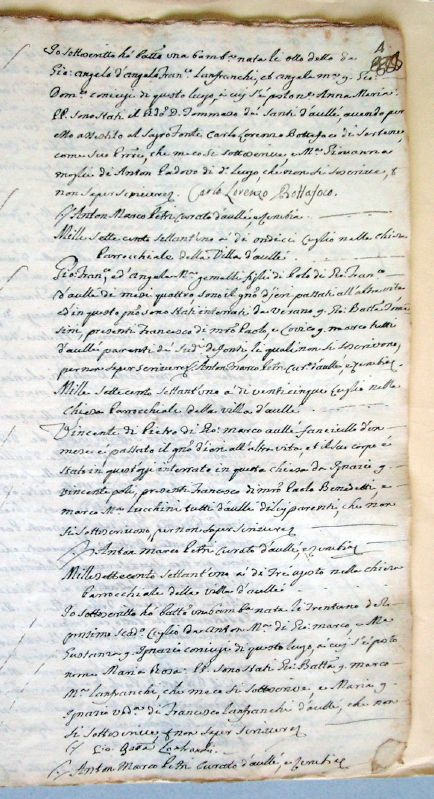 Io sottoscritto hò batt.o una bamb.a nata le otto detto da
Gio: angelo d'angelo Fran.co Lanfranchi, et angela m.a q. Gio:
Dom.co conjugi di questo luogo, à cui s'è posto nome Anna Maria:
PP. sono stati il Tommaso de Santi d'aullé, avendo per
esso assistito al Sagro Fonte Carlo Lorenzo Bottafoco di
come suo Proc.re, che meco si sottoscrive, e M.a Giovanna
moglie di Anton Padovo di d.o luogo, che non si scrive, p
non saper scrivere
Carlo Lorenzo Bottafoco.
Anton Marco Petri Curato d'aullé, e
Mille sette cento settant'uno à dì ondici Luglio nella chiesa
Parrocchiale della Villa d'aullé
Gio: Fran.co, ed angela M.a gemelli figli di Polo di Gio: Fran.co
d'aullé di mesi quattro sono il gno d'jeri passati all'altra vita
ed in questo gno sono stati interrati da Verano q. Gio: Batta
sini, presenti Francesco di mro Paolo, e Lovico q. marco tutti
d'aullé parenti de li quali non si soscrivono,
per non saper scrivere Anton Marco Petri Cur.o d'aullé, e
Mille sette cento settant'uno à dì venticinque Luglio nella
Chiesa Parrocchiale della villa d'aullé
Vincente di Pietro di Gio: marco aullé fanciullo d'un
mese è passato il gno d'jeri all'altra vita, et il suo corpo è
stato in quest'oggi interrato in questa chiesa da Ignazio q.
vincente poli, presenti Francesco di mro Paolo Benedetti, e
marco M.a Lucchini tutti d'aullé di lui parenti, che non
si sottoscrivono, per non saper scrivere
Anton Marco Petri Curato d'aullé, e
Mille settecento settant'uno à dì Tre agosto nella chiesa
Parrocchiale della villa d'aullé
Io sottoscritto hò batt.o una bamb.a nata le Trentuno del
prossimo Luglio da Anton M.a di Gio: marco, e M.a
q. Ignazio conjugi di questo luogo, à cui s'è posto
nome Maria Rosa. PP. sono stati Gio: Batta q. marco
M.a Lanfranchi, che meco si sottoscrive, e Maria q.
Ignazio di Francesco Lanfranchi d'aullé, che non
si sottoscrive p non saper scrivere
Gio Batta Lanfranchi
Anton Marco Petri Curato d'aullé, e